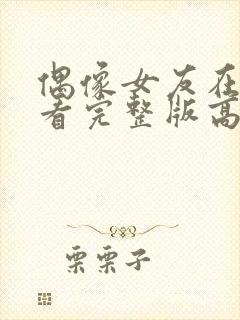 偶像女友在
看完整版高
栗栗子